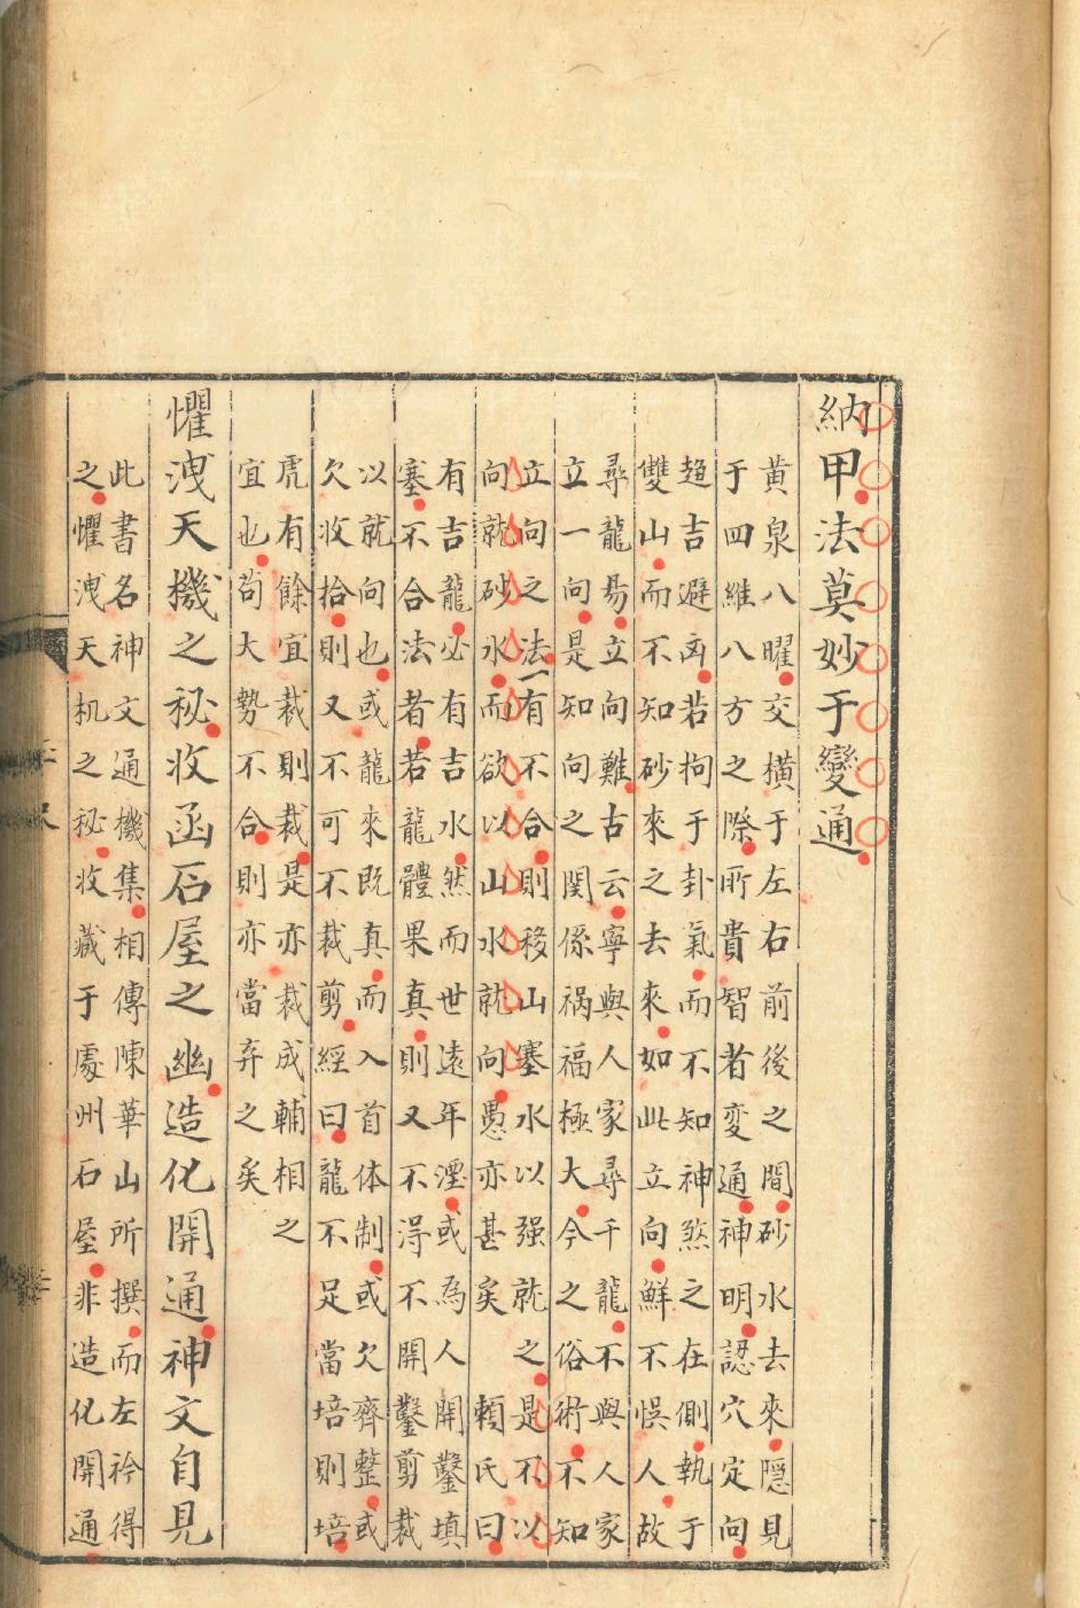 納甲法莫妙于變通
黃泉八曜交橫于左右前後之間砂水去來隱見
于四維八方之際所貴智者変通神明認穴定向
趋吉避凶若拘于卦氣而不知神煞之在側執于
雙山而不知砂來之去來如此立向鮮不悮人故
尋龍易立向難古云寧與人家尋千龍不與人家
立一向是知向之関係祸福極大今之俗術不知
立向之法一有不合則移山塞水以强就之是不以
向就砂水而欲以山水就向愚亦甚矣 賴氏曰
有吉龍必有吉水然而世遠年湮或為人開鑿填
塞不合法者若龍體果真則又不得不開鑿剪裁
以就向也或龍來既真而入首体制或欠齊整或
欠收拾則又不可不裁剪經曰龍不足當培則培
虎有餘宜裁則裁是亦裁成輔相之
宜也苟大勢不合則亦當弃之矣
懼洩天機之秘收函石屋之幽造化開通神文自見
此書名神文通機集相傳陳華山所撰而左衿得
之懼洩天机之秘收藏于處州石屋非造化開通